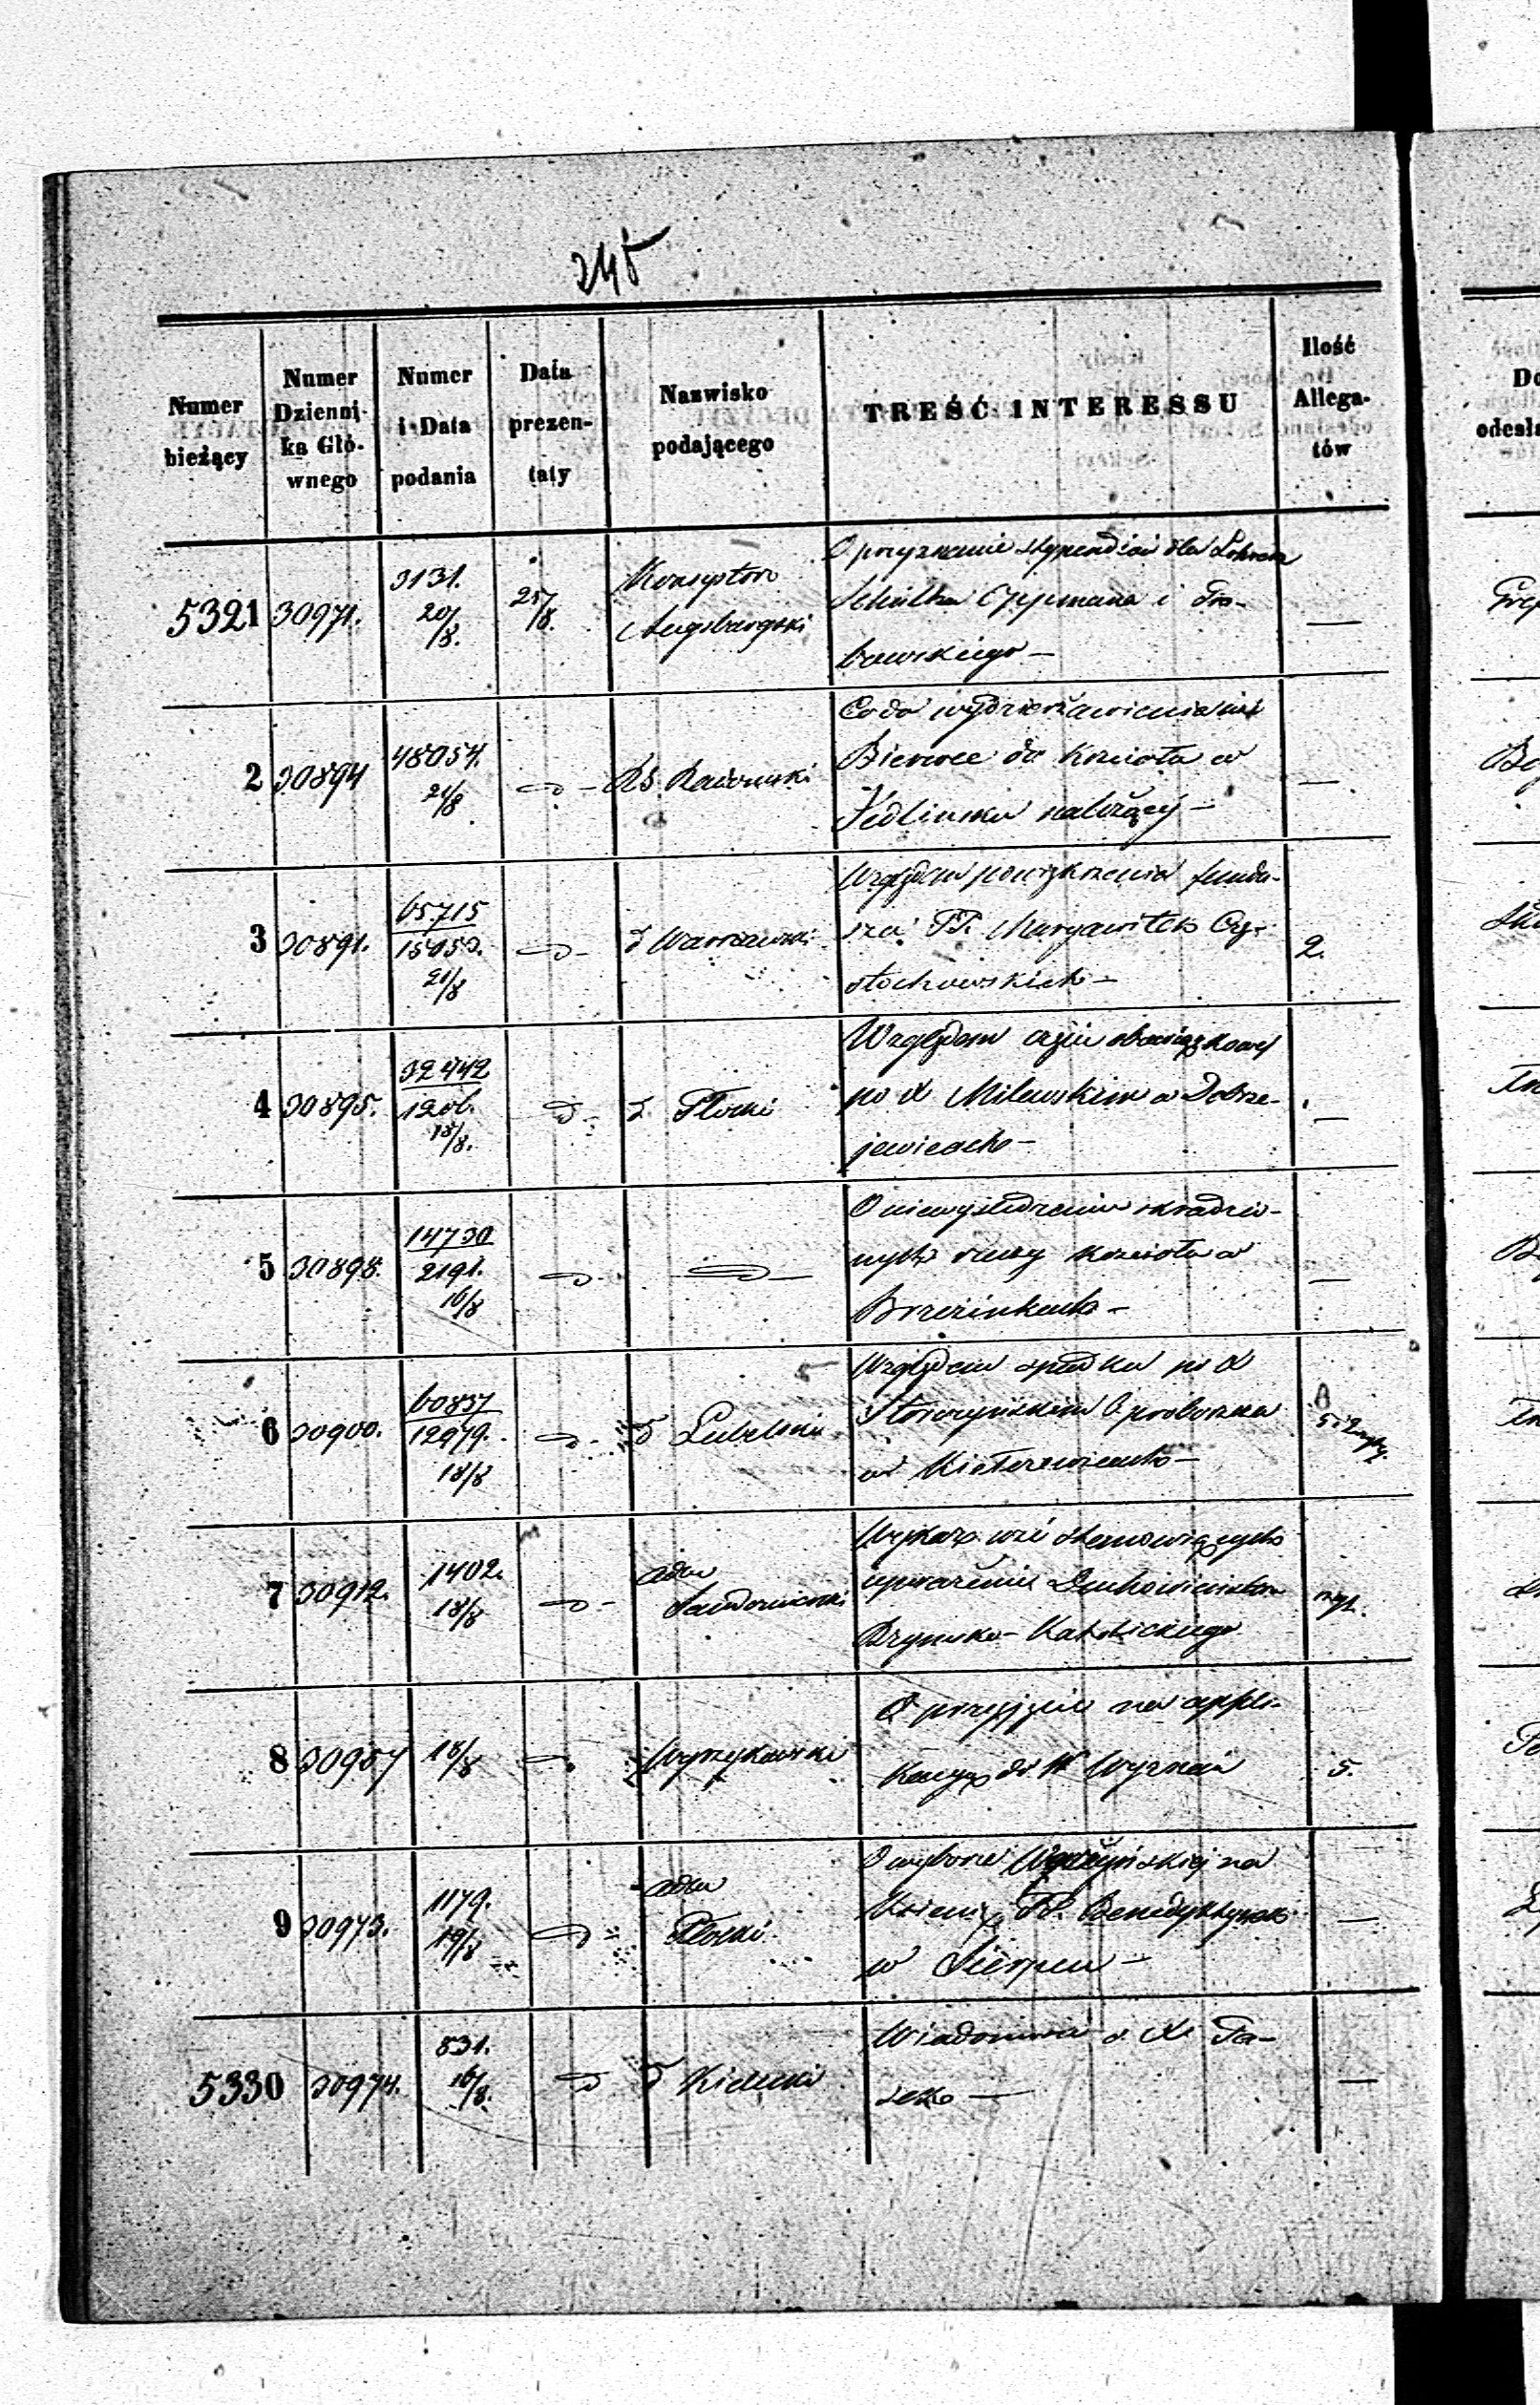 245
Numer bieżący
Numer Dzienni- ka Głó- wnego
Numer i Data podania
Data prezen- taty
Nazwisko podającego
TREŚĆ INTERESSU
Ilość Allega- tów
5321 30971. 3131. 20/8. 25/8. Konsystorz Augsburgski
O przyznanie stypendiów dla
Schultza Oppmana i
bowskiego —
2 30894 48054. 21/8 D - RG. Radomski
Co do wydzierżawienia
Bierwce do Kościoła w
Jedlińsku należącej —
3 30891. 65715 15053. 21/8 D - Warszawski
Względem powiększenia fundu-
szu PP. Maryawitek Czę-
stochowskich — 2.
4 30895. 32442 1206. 18/8. D - Płocki
Względem
po X Milewskim w Dobrze-
jewicach —
5 30898. 14730 2191. 16/8 D - D —
O niewyśledzeniu skradzio-
nych rzeczy Kościoła w
Brzezinkach —
6 30900. 60837 12979. 18/8 D - Lubelski
Względem spadku po X
proboszcza
w —
7 30912. 1402. 18/8 D - adm Sandomierski
Wykaz wsi stanowiących
uposażenie Duchowieństwa
Rzymsko-Katolickiego
8 30957 18/8 D Wyrzykowski
O przyjęcie na appli-
kacyę do W Wyznań 5.
9 30973. 1179. 19/8 D - adm Płocki
O wyborze na
Xienię PP. Benedyktynek
w Sierpcu —
5330 30974. 831. 16/8. D Kielecki
Wiadomość o X